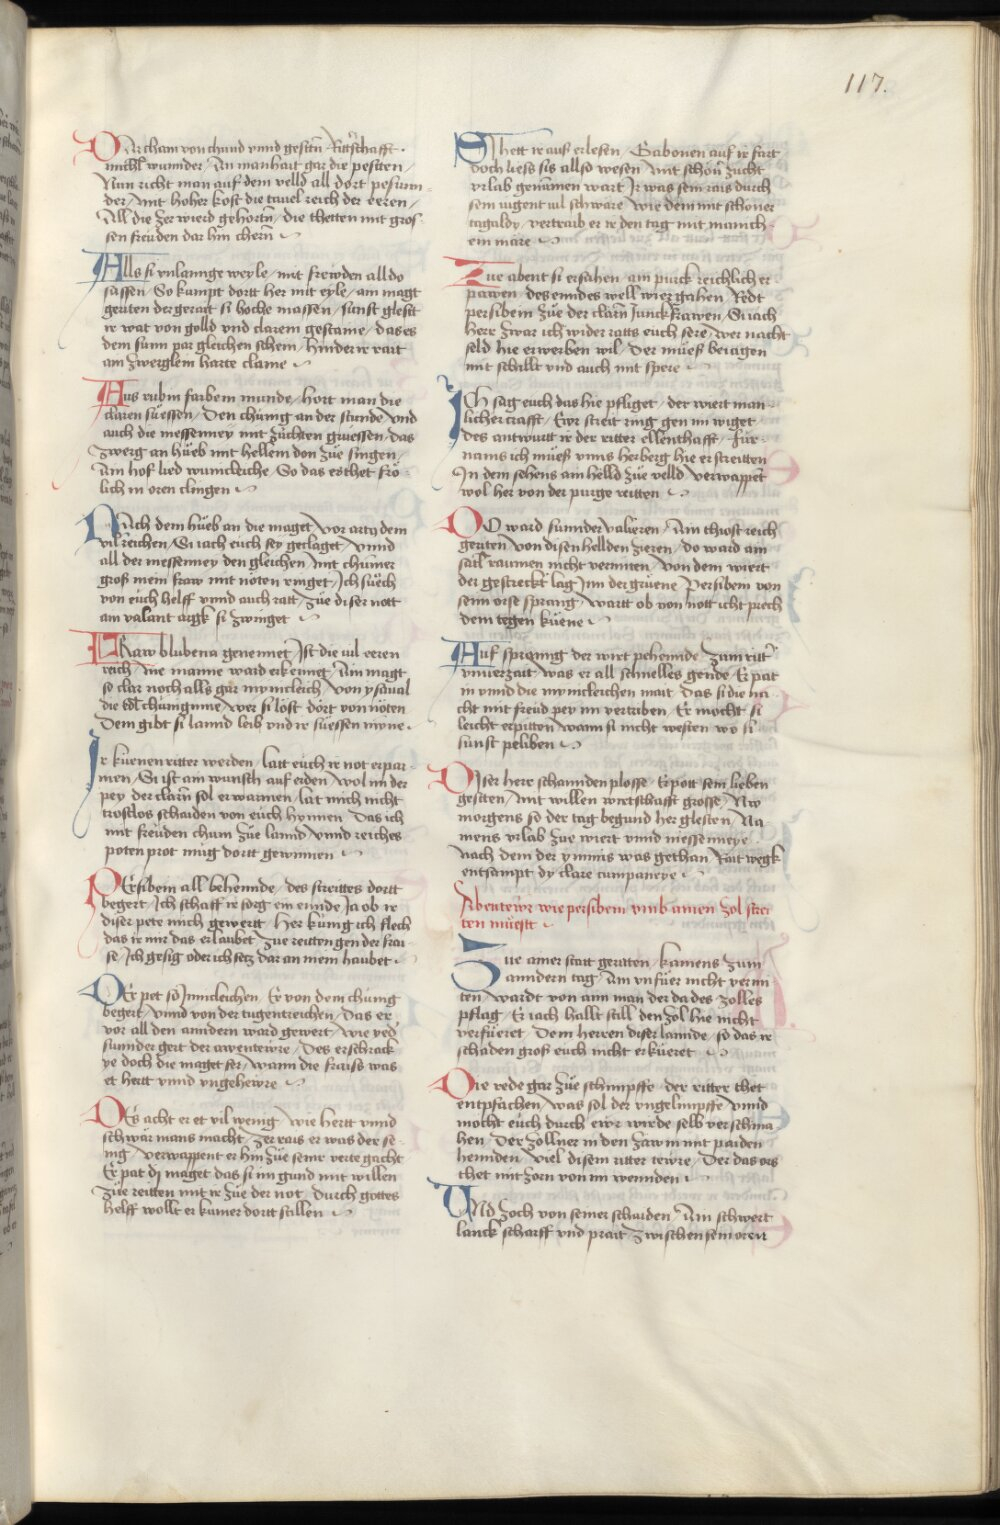 117.
Dar cham von chund vnnd gesten Ritterschafft
michl wunnder / Än manhait gar die pesten /
Nun richt man auf dem velld all dort pesunn-
der / mit hoher kost die tauel reich der eeren /
All die zer wierd gehorten / die thetten mit gros
sen freuden dar hin chern
Alls si vnlannge weyle / mit frewden all do
sassen / So kumpt dortt her mit eyle / am magt
geriten der gerait si hoche massen / sunst glestt
ir wat von golld vnd clarem gestaine / das es
dem sunn par gleichen schein / hinder ir rait
am zwerglem harte claine
Aus rubin farbem munde / hort man die
claren süessen / Den chünig an der stunde / vnd
auch die messenney mit züchten gruessen / das
zwerg an hüeb mit hellem don zue singen /
Am hof lied wunicleiche / So das es thet frö-
lich in oren clingen
Nach dem hüeb an die maget / vor artus dem
vil reichen / Si iach euch sey geclaget / vnnd
all der messenney den gleichen / mit chumer
gros mein fraw mit nöten ringet / Ich suech
von euch helff vnnd auch ratt / zue diser nott
am valant argk si zwinget
Fraw blubena genennet / Ist die vil eeren
reich / nie manne ward erkennet / Äin magt
so clar noch alls gar mynicleich / von ysaual
die edl chüniginne / wer si löst dort von nöten
Dem gibt si lannd leib vnd ir süessen mÿne
Ir küenen ritter werden / latt euch ir not erpar-
men / Si ist am wunsch auf erden / wol im der
pey der clarn sol erwarmen / lat mich nicht
trostlos schaiden von euch hynnen / Das ich
mit freuden chum zue lannd / vnnd reiches
poten prot müg dortt gewinnen
Persibein all behennde / des streittes dortt
begert / Ich schaff ir sorg ein ennde / Ja ob ir
diser pete mich gewertt / Her künig ich flech
das ir mir das erlaubet / zue reitten gen der frai-
se / Ich gesig oder ich setz dar an mein haubet
Er pet so Innicleichen / Er von dem chünig
begert / vnnd von der tugentreichen / Das er
vor all den anndern ward gewert / wie yed
sunnder gert der awentewre / Des erschrack
ye doch die maget ser / wann die fraiss was
et hertt vnnd vngehewre
Des acht er et vil wenig / wie hertt vnnd
schwär mans macht / zer rais er was der se-
nig / verwappent er hin zue seiner verte gacht
Er pat dy maget das si im gund mit willen
zue reitten mit ir zue der not / durch gottes
helff wollt er kumer dortt stillen
Si hett ir aus erlesen / Gabonen auf ir fart
doch liess sis allso wesen / mit schön zucht
vrlab genumen wart / Ir was sein rais durch
sein iugent vil schwäre / wie dem mit schöner
tagaldy / vertraib er ir den tag mit manich-
em märe
Zue abent si ersahen / am purck reichlich er
pawen / des enndes well wier gahen / Redt
persibein zue der clarn Junckfrawen / Si iach
herr zwar ich wider ratts euch sere / wer nacht
seld hie erwerben wil / der muess beiagen
mit schillt vnd auch mit spere
Ich sag euch das hie pfliget / der wiert man-
licher crafft / Ewr streit ring gen im wiget
des antwurtt ir der ritter ellenthafft / für-
nams ich muess vnns herberg hie erstreitten
In dem sehens am helld zue velld / verwappent
wol her von der purge reitten
Do ward sunnder valieren / Äin thiost reich
geriten / von disen hellden zieren / do ward ain
satl raumen nicht vermiten / von dem wiert
der gestreckt lag Inn der gruene / Persibein von
seim orse sprang / wartt ob von nott icht prech
dem tegen küene
Auf sprannig der wirt pehennde / zum ritter
vnuerzait / was er all schnelles gende / Er pat
in vnnd die mynicleichen mait / das si die na
cht mit freud pey im vertriben / Er mocht si
leicht erpitten / wann si nicht westen wo si
sunst peliben
Diser herr schannden plosse / Er pott sein lieben
gestten / mit willen wirtschafft grosse / Nw
morgens so der tag begund her glesten / Na
mens vrlab zue wiert vnnd messenneye
Nach dem der ymnis was gethan / Rait wegk
entsampt dy clare cumpaneye
Abentewr wie persibein vmb ainen zol strei
ten müestt
Zue ainer statt geratten / kamens zum
anndern tag / Am vnfuer nicht vermi-
ten / wardt von ann man der da des zolles
pflag / Er iach hallt still den zol hie nicht
verfüeret / Dem herren diser lannde / so das ir
schaden gros euch nicht erküeret
Die rede gar zue schimpffe / der ritter thet
entpfachen / was sol der vngelimpffe / vnnd
mocht euch durch ewr wirde selb verschma
hen / Der zollner in den zawm mit paiden
hennden / viel disem ritter tewre / Der das ors
thet mit zorn von im wennden
Vnd zoch von seiner schaiden / Äin schwert
lanck scharff vnd prait / zwischen sein oren